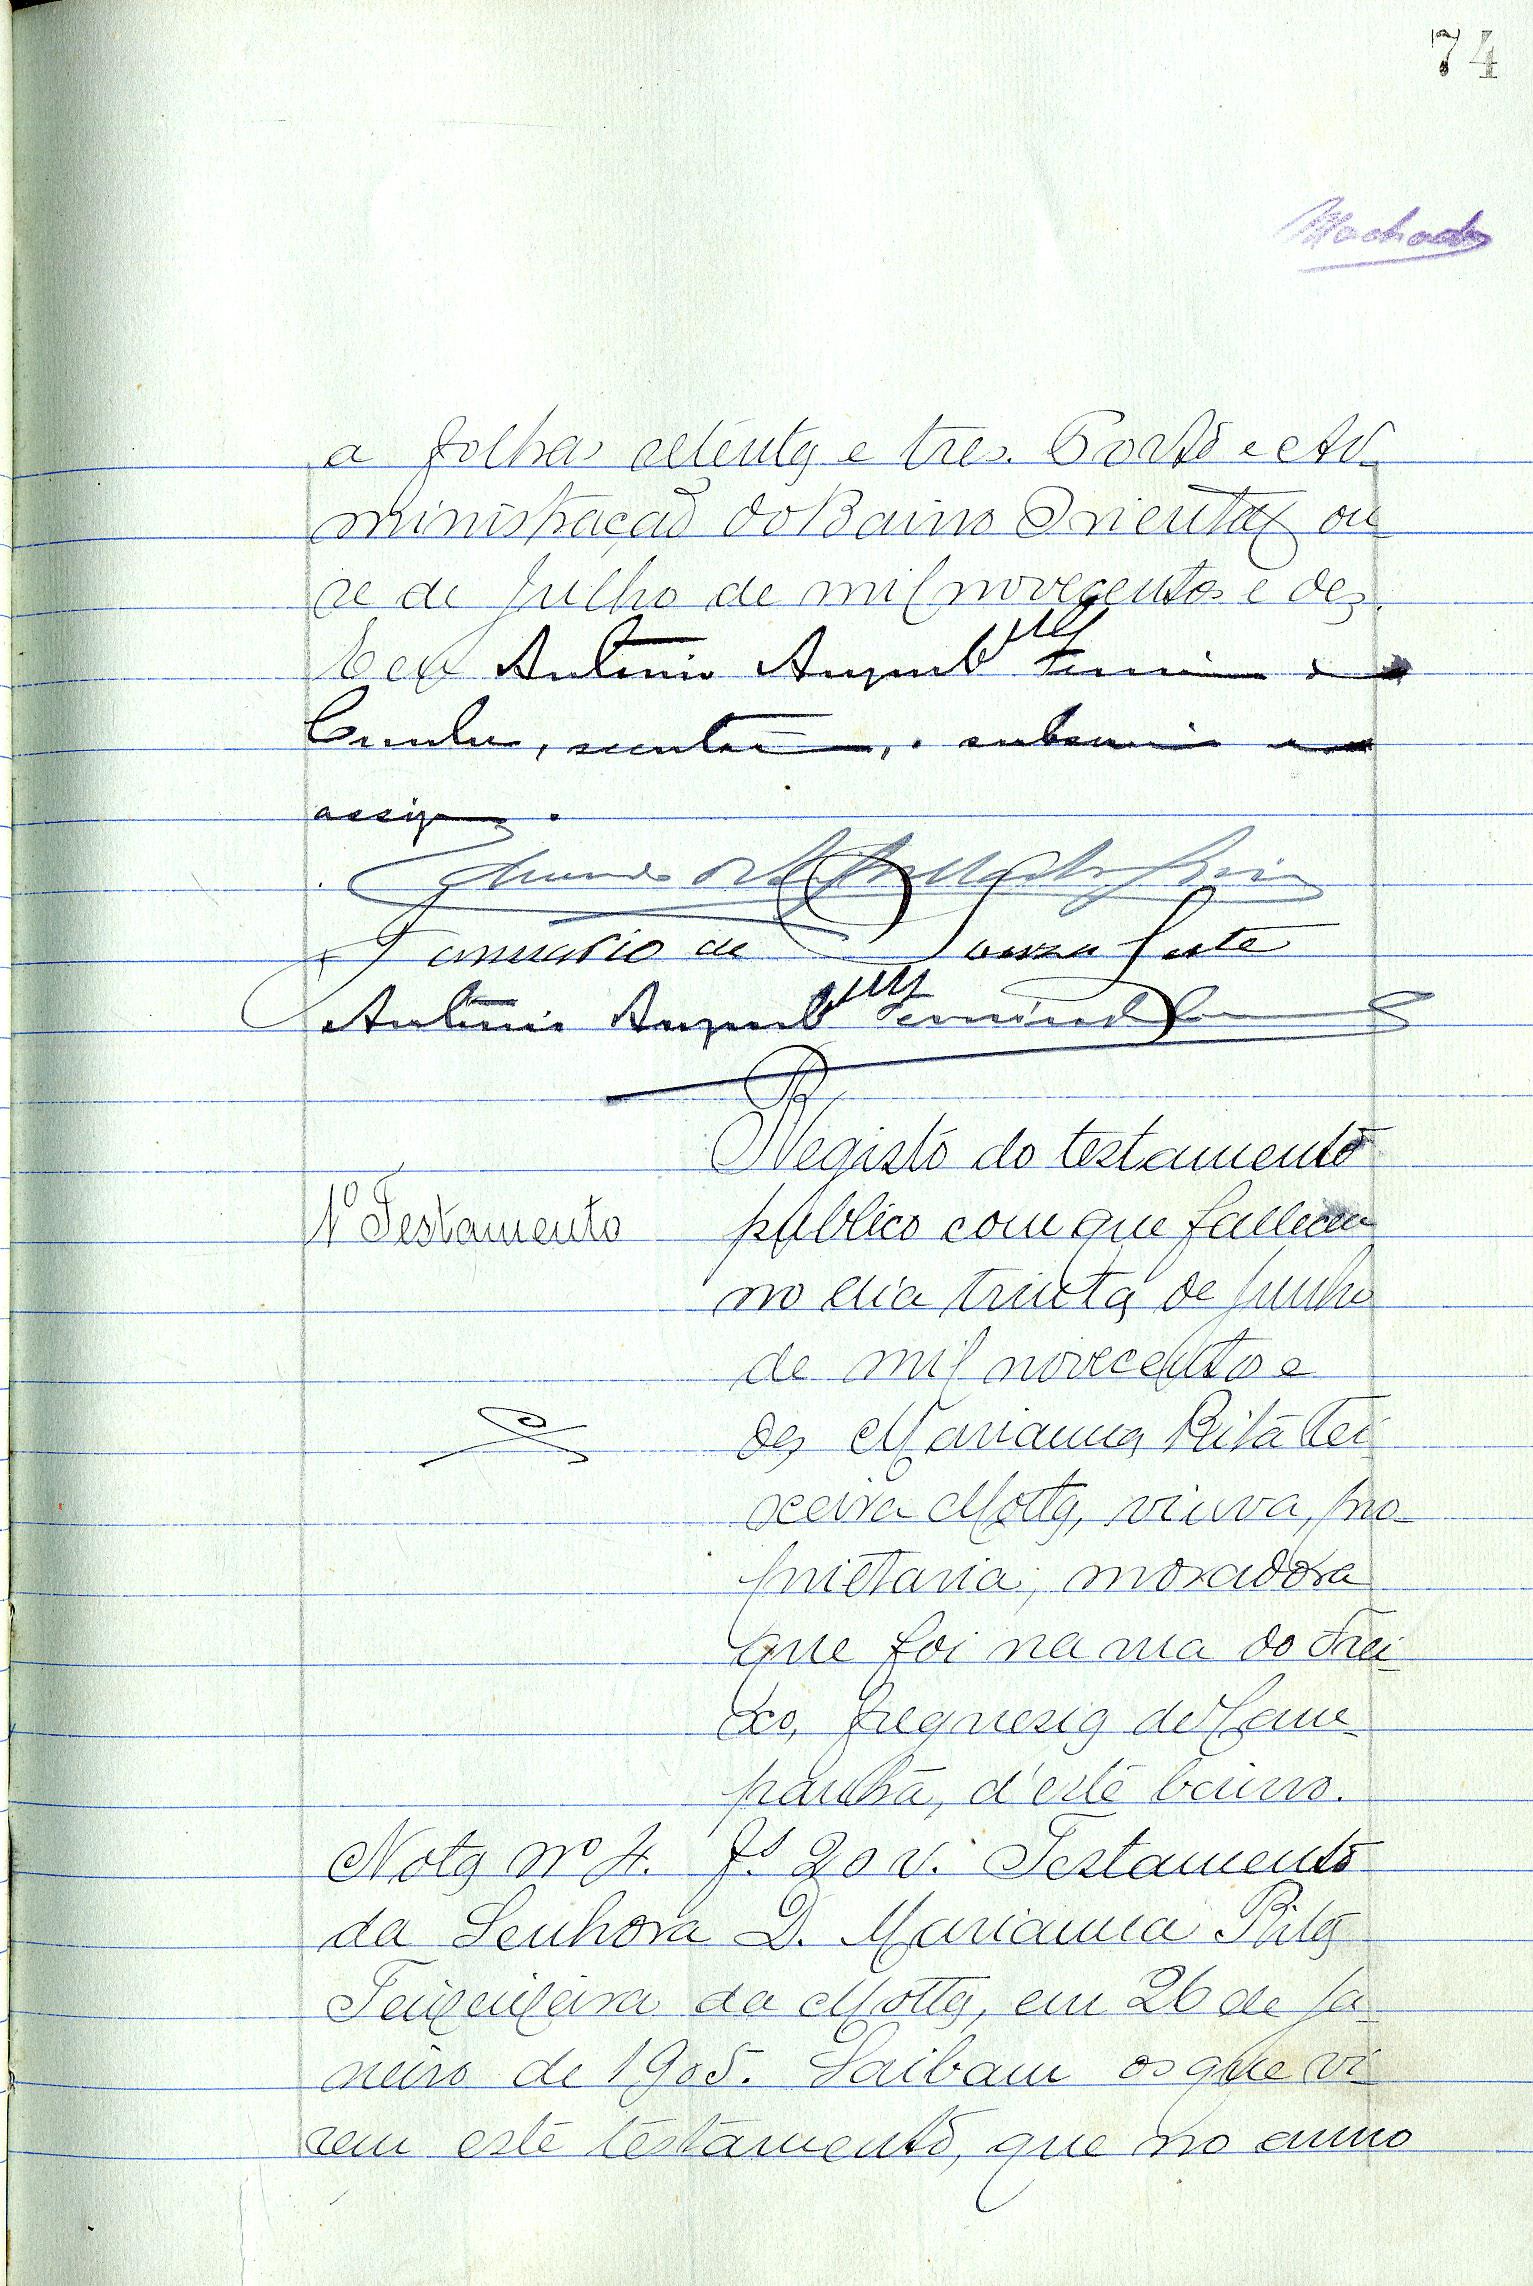 74
Machado
a folhas setenta e tres. Porto e Ad-
ministração do Bairro Oriental on-
ze de Julho de mil novecentos e dez.
Eu Antonio Augusto Ferreira da
Cunha, secretario, o subscrevi e
assigno.
Januario de Souza Forte
Antonio Augusto Ferreira da Cunha
Registo do testamento
Nº Testamento publico com que falleceu
no dia trinta de Junho
de mil novecentos e
dez Marianna Rita Tei
xeira Motta, viuva, pro-
prietaria, moradora
que foi na rua do Frei-
xo, freguesia de Cam-
panhã, d'este bairro.
Nota nº 4. fs 20 v. Testamento
da Senhora D. Marianna Rita
Teixeira da Motta, em 26 de Ja-
neiro de 1905. Saibam os que vi-
rem este testamento, que no anno